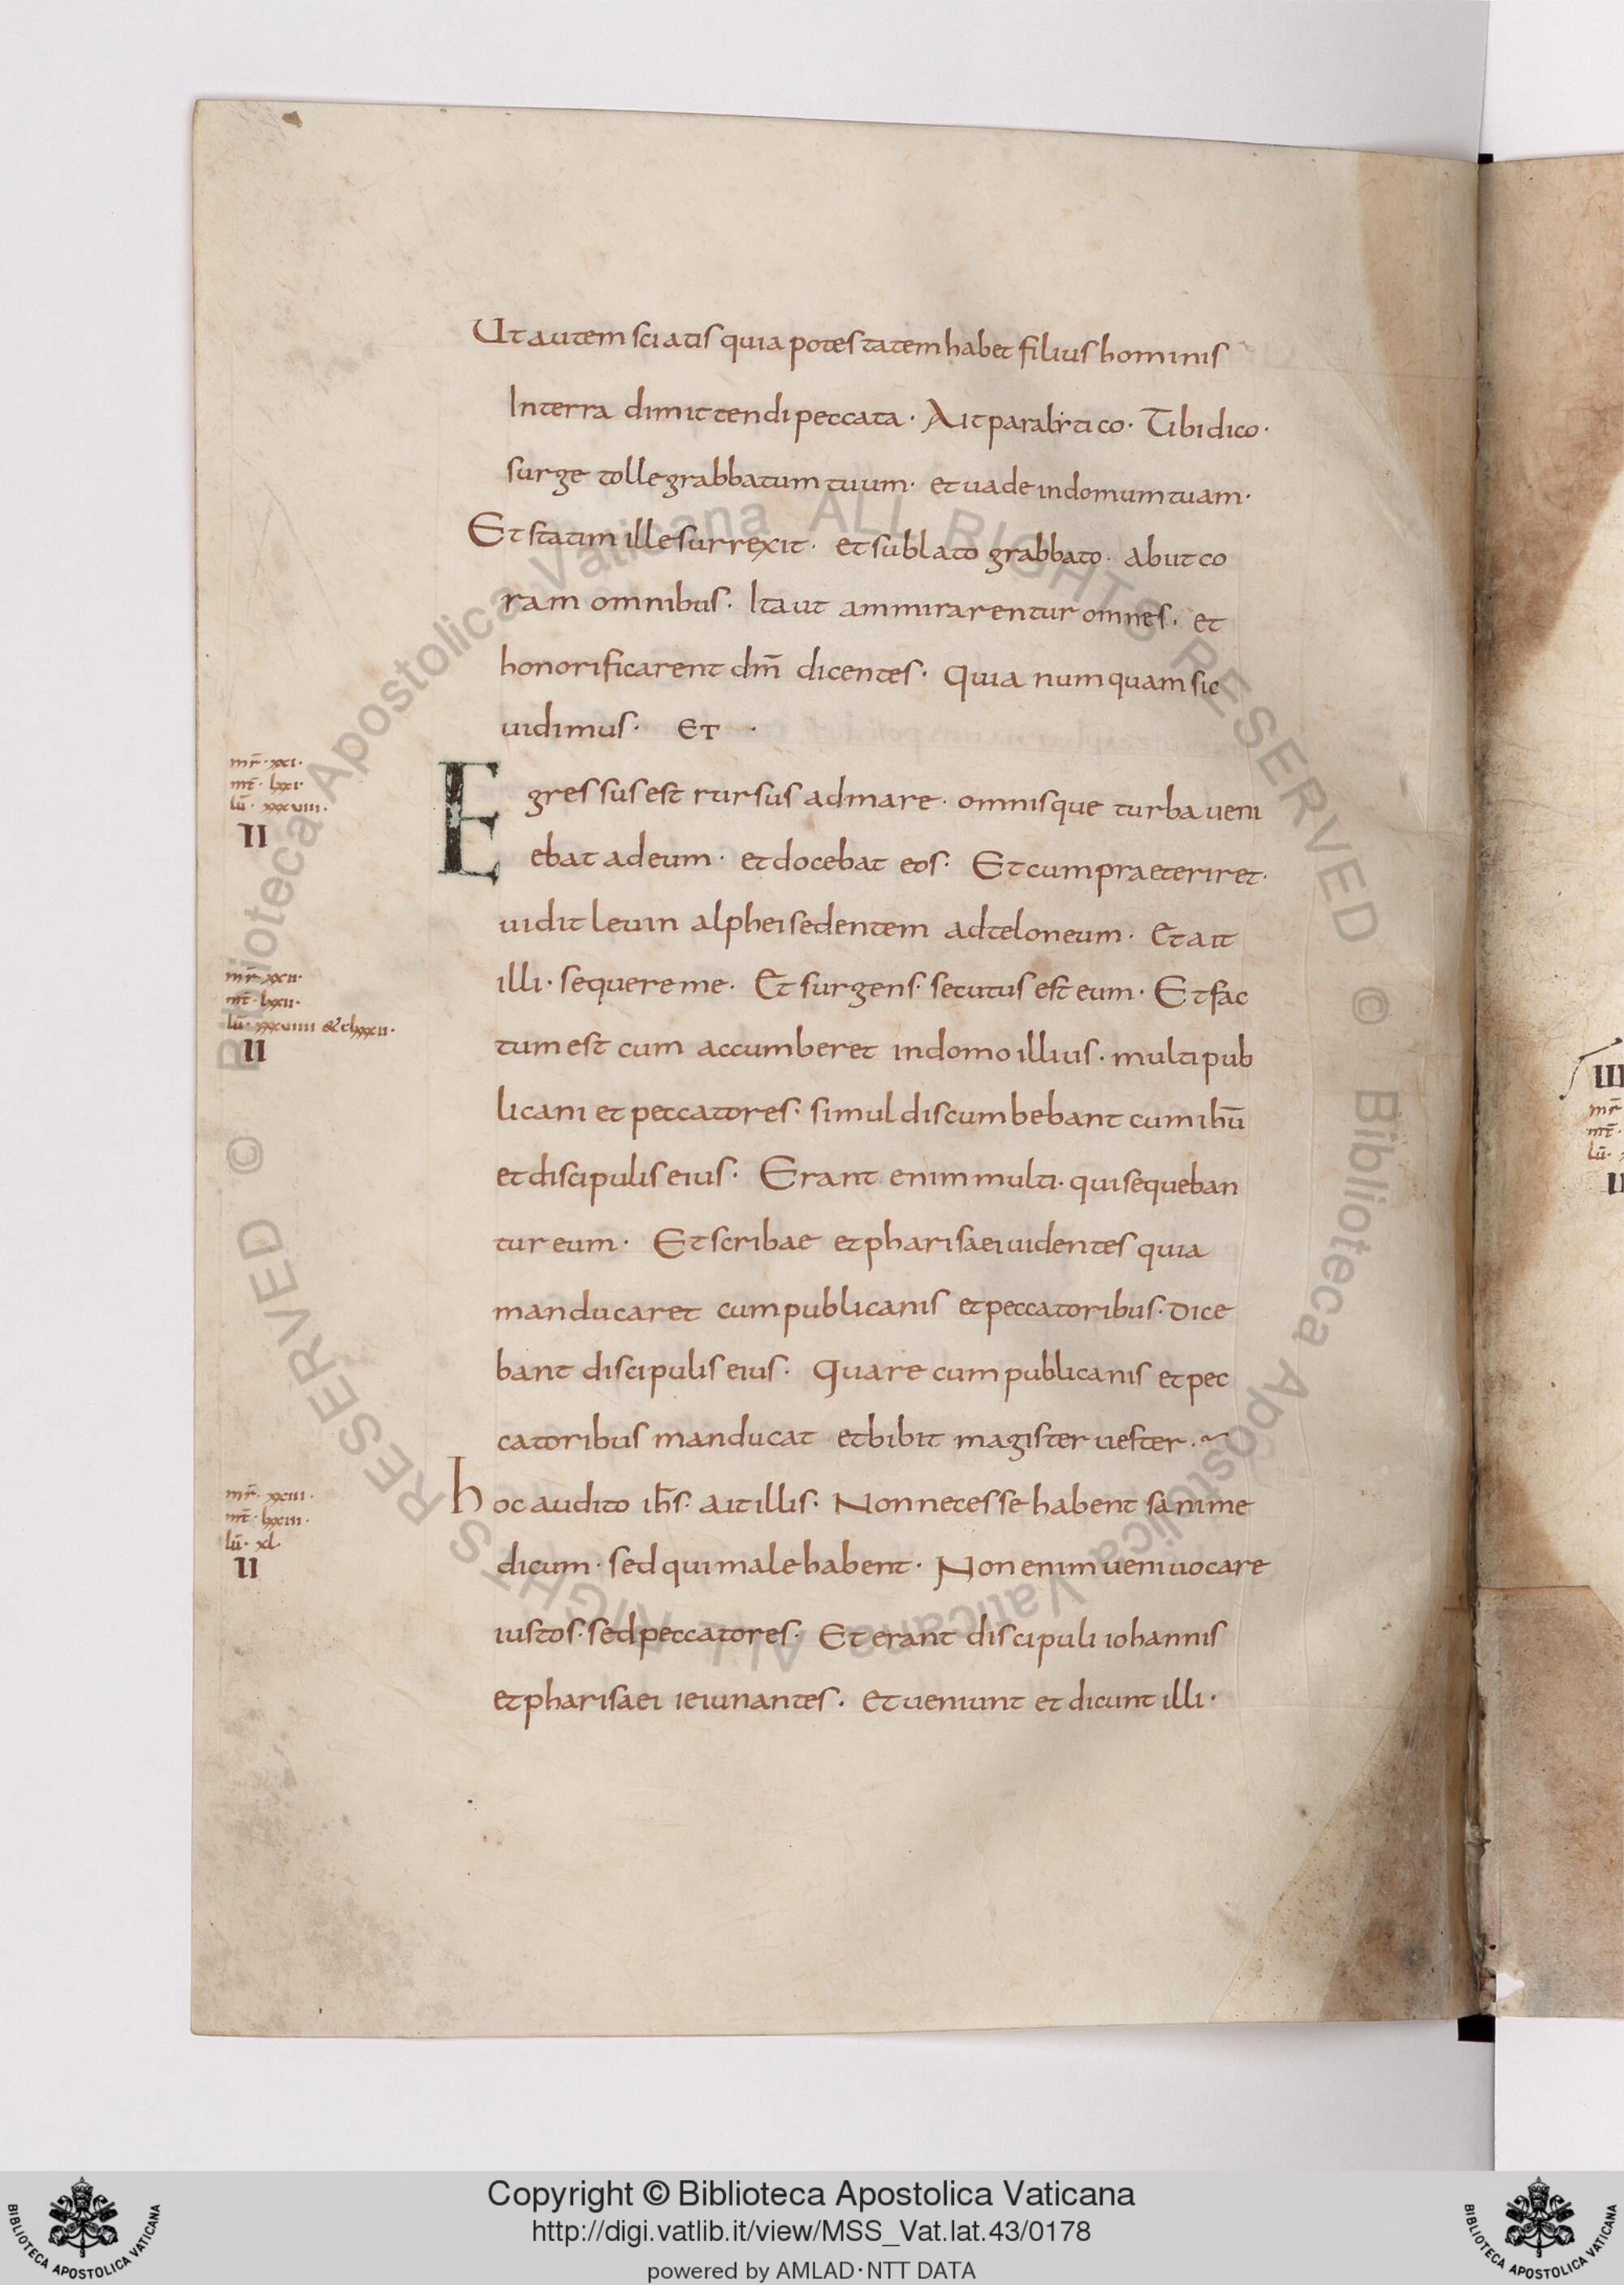 Ut autem sciatis quia potestatem habet filius hominis
In terra dimittendi peccata · Ait paralitico · Tibi dico ·
surge tolle grabbatum tuum · et uade in domum tuam ·
Et statim ille surrexit · et sublato grabbato · abiit co
ram omnibus · Ita ut ammirarentur omnes · et
honorificarent dm̄ dicentes · Quia numquam sic
uidimus · ET ·
mr̄ · xxi ·
mt̄ · lxxi ·
lū · xxxviii ·
II
Egressus est rursus ad mare · omnisque turba ueni
ebat ad eum · et docebat eos · Et cum praeteriret ·
uidit leuin alphei sedentem ad teloneum · Et ait
mr̄ · xxii ·
mt̄ · lxxii ·
lū · xxxviiii & clxxxii ·
II
illi · sequere me · Et surgens · secutus est eum · Et fac
tum est cum accumberet in domo illius · multi pub
licani et peccatores · simul discumbebant cum ihū
et discipulis eius · Erant enim multi · qui sequeban
tur eum · Et scribae et pharisaei uidentes quia
manducaret cum publicanis et peccatoribus · Dice
bant discipulis eius · Quare cum publicanis et pec
catoribus manducat et bibit magister uester · ~
mr̄ · xxiii ·
mt̄ · lxxiii ·
lū · xl ·
II
hoc audito ih̄s · ait illis · Non necesse habent sani me
dicum · sed qui male habent · Non enim ueni uocare
iustos · sed peccatores · Et erant discipuli iohannis
et pharisaei ieiunantes · et ueniunt et dicunt illi ·
III
mr̄
mt̄ ·
lū ·
Biblioteca Apostolica Vaticana ALL RIGHTS RESERVED © Biblioteca Apostolica Vaticana ALL RIGHTS RESERVED ©
Copyright © Biblioteca Apostolica Vaticana
http://digi.vatlib.it/view/MSS_Vat.lat.43/0178
powered by AMLAD·NTT DATA
BIBLIOTECA APOSTOLICA VATICANA
BIBLIOTECA APOSTOLICA VATICANA